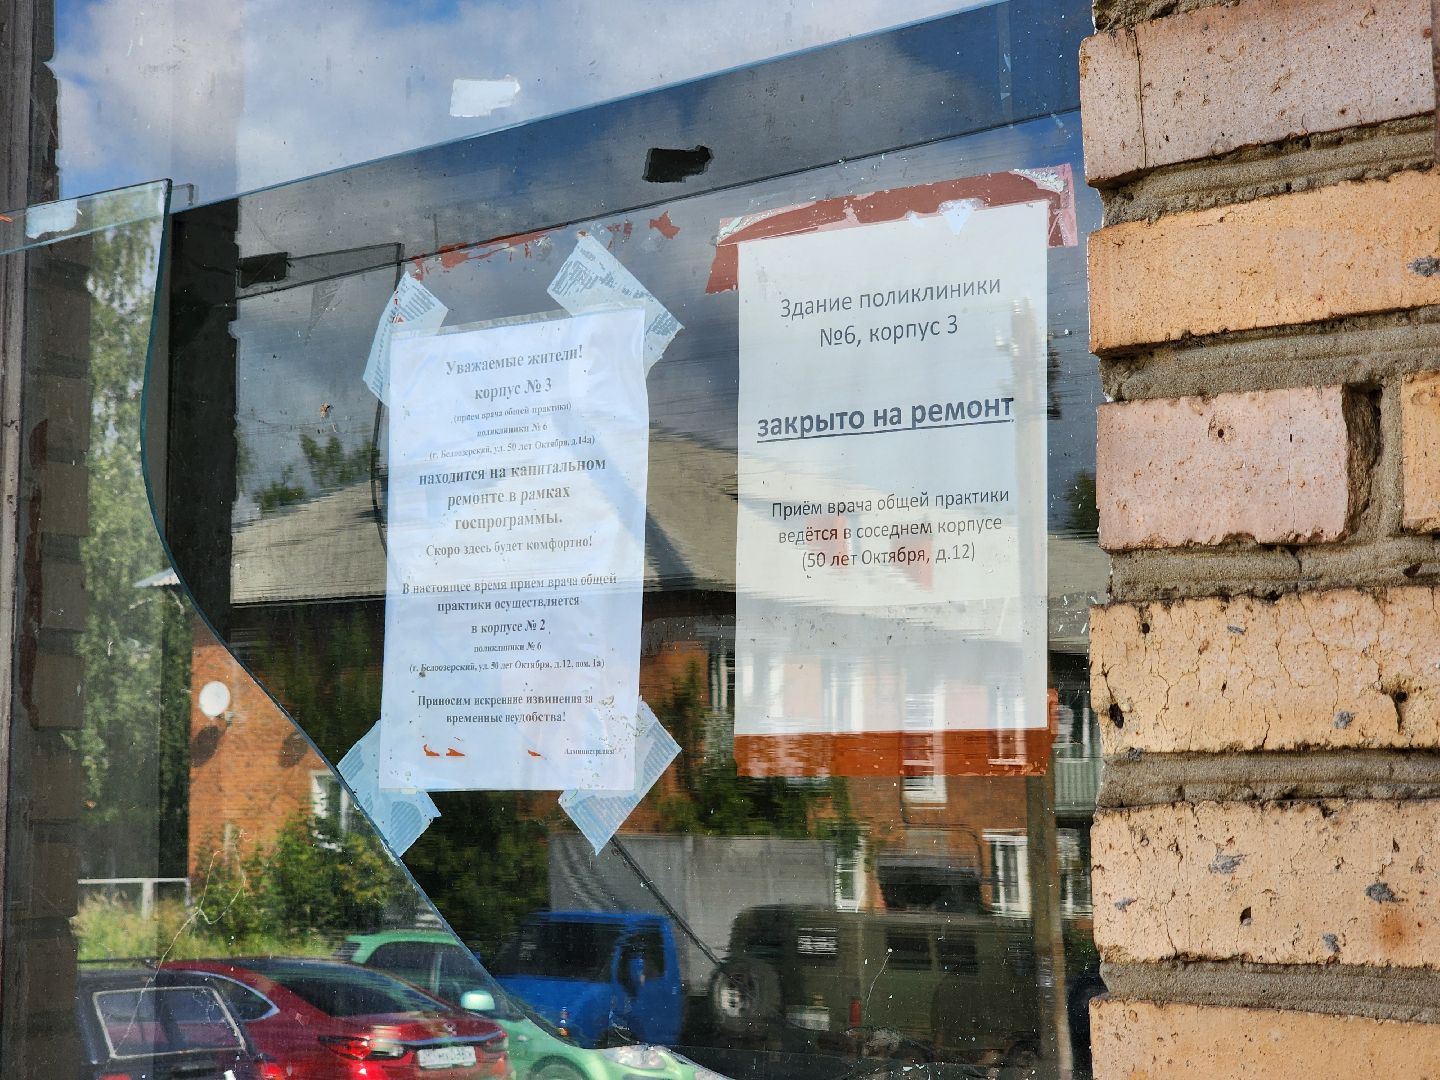 Уважаемые жители!
корпус № 3
(прием врача общей практики)
поликлиники № 6
(г. Белоозерский, ул. 50 лет Октября, д.14а)
находится на капитальном
ремонте в рамках
госпрограммы.
Скоро здесь будет комфортно!
В настоящее время прием врача общей
практики осуществляется
в корпусе № 2
поликлиники № 6
(г. Белоозерский, ул. 50 лет Октября, д.12, пом. 1а)
Приносим искренние извинения за
временные неудобства!
Администрация
Здание поликлиники
№6, корпус 3
закрыто на ремонт
Приём врача общей практики
ведётся в соседнем корпусе
(50 лет Октября, д.12)